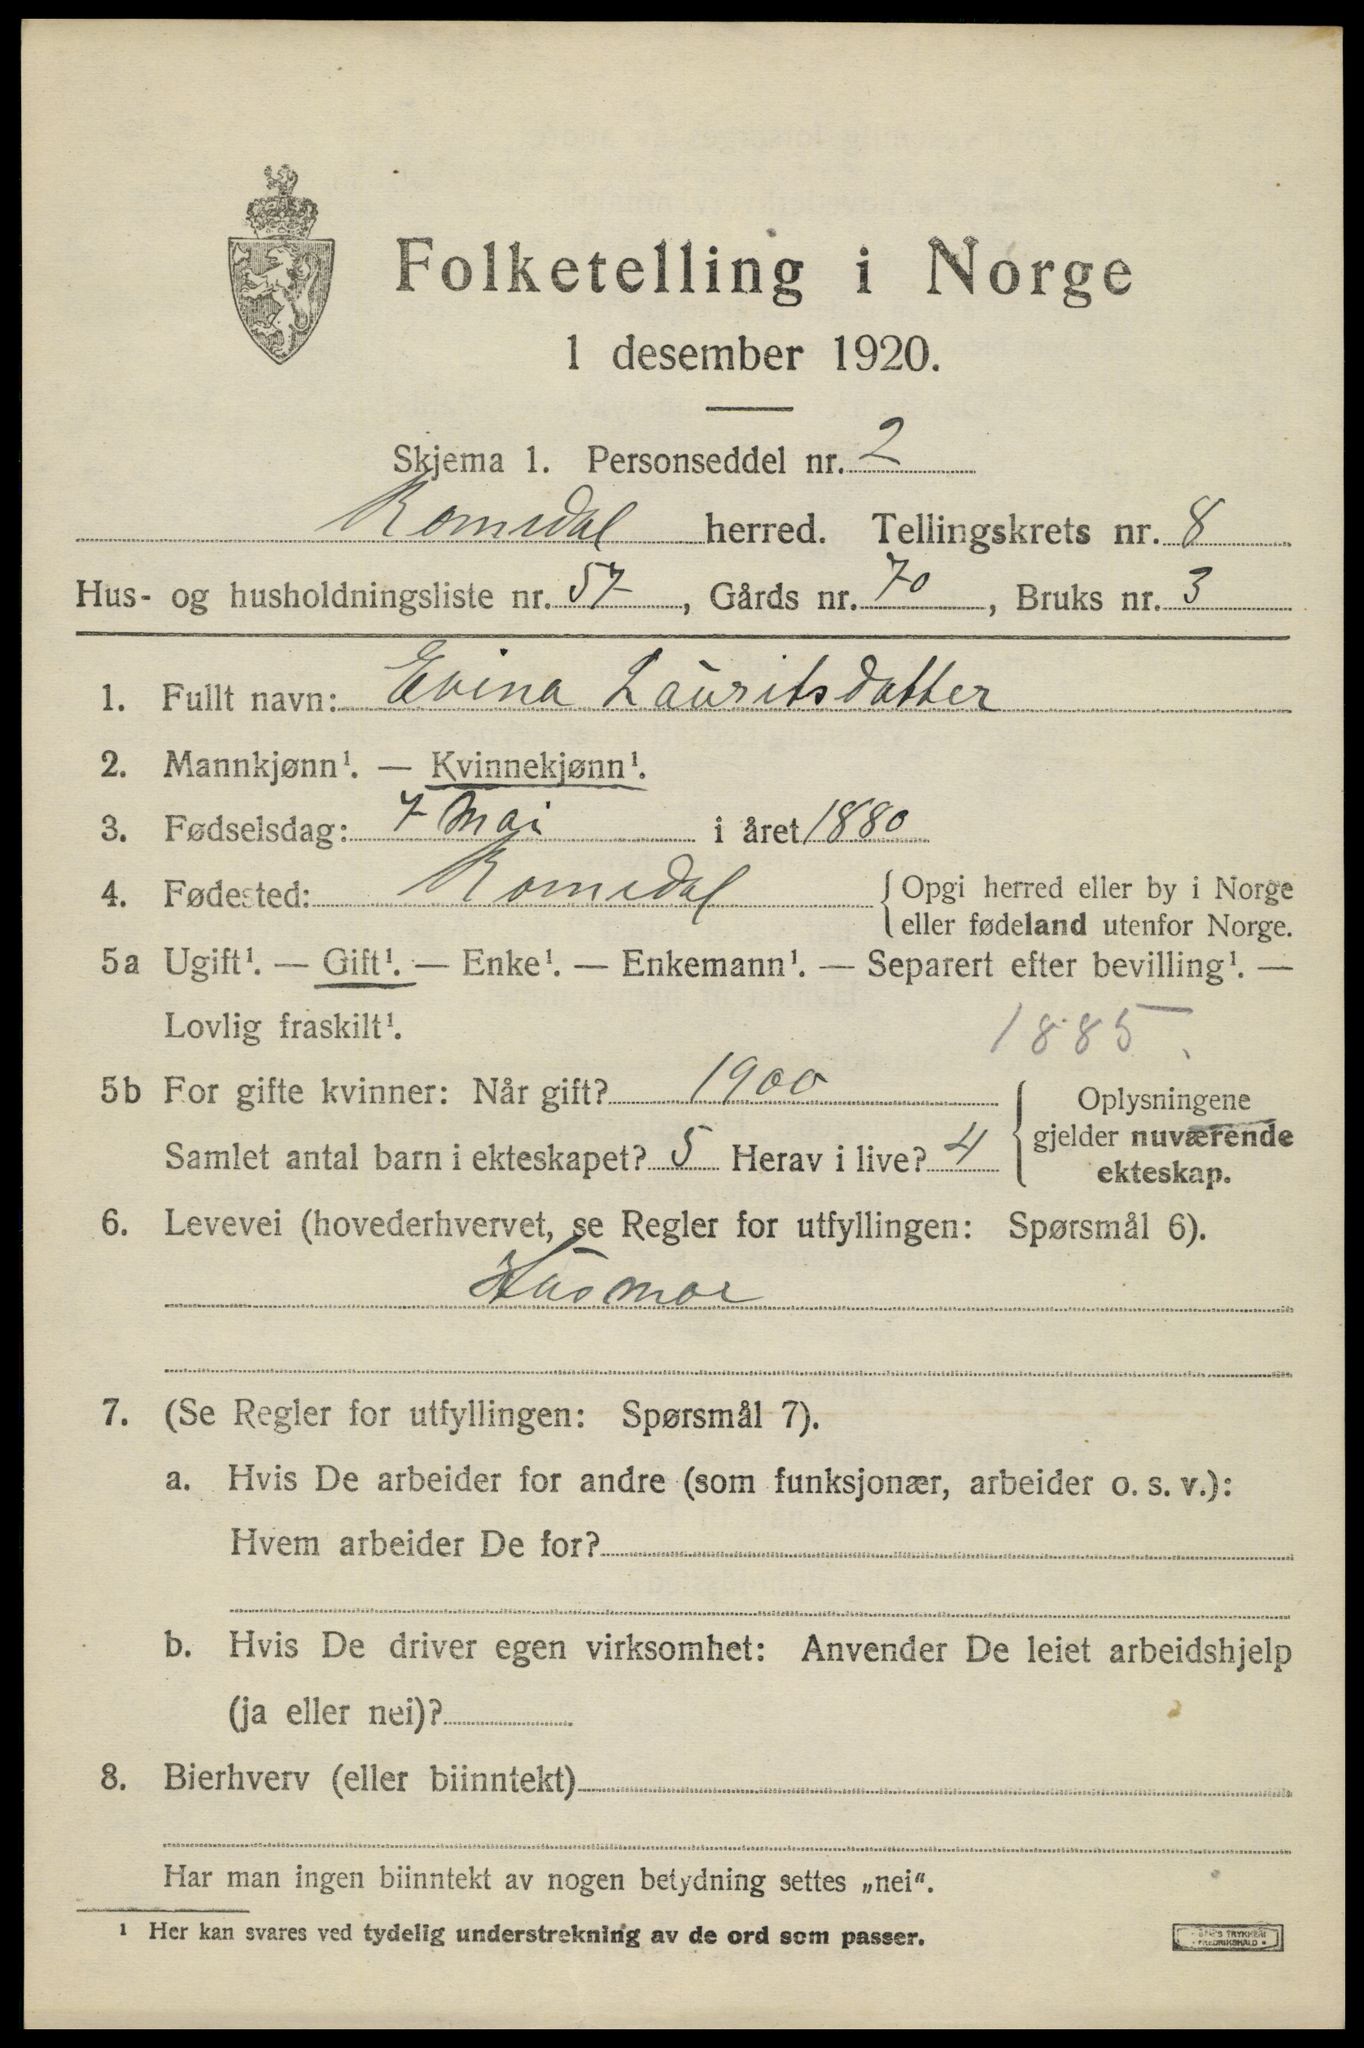 Folketelling i Norge
1 desember 1920.
Skjema 1. Personseddel nr. 2
Romedal herred. Tellingskrets nr. 8
Hus- og husholdningsliste nr. 57, Gårds nr. 70, Bruks nr. 3
1. Fullt navn: Evina Lauritsdatter
2. Mannkjønn¹. — Kvinnekjønn¹.
3. Fødselsdag: 7 Mai i året 1880
4. Fødested: Romedal { Opgi herred eller by i Norge
eller fødeland utenfor Norge.
5a Ugift¹. — Gift¹. — Enke¹. — Enkemann¹. — Separert efter bevilling¹. —
Lovlig fraskilt¹. 1885.
5b For gifte kvinner: Når gift? 1900 { Oplysningene
gjelder nuværende
Samlet antal barn i ekteskapet? 5 Herav i live? 4
ekteskap.
6. Levevei (hovederhvervet, se Regler for utfyllingen: Spørsmål 6).
Husmor
7. (Se Regler for utfyllingen: Spørsmål 7).
a. Hvis De arbeider for andre (som funksjonær, arbeider o. s. v.):
Hvem arbeider De for?
b. Hvis De driver egen virksomhet: Anvender De leiet arbeidshjelp
(ja eller nei)?
8. Bierhverv (eller biinntekt)
Har man ingen biinntekt av nogen betydning settes „nei“.
¹ Her kan svares ved tydelig understrekning av de ord som passer.
TRYKKERI
FREDRIKSHALD